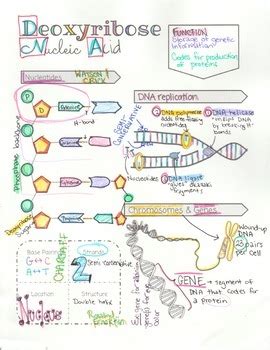 Deoxyribose
Nucleic Acid
FUNCTION
Storage of genetic
information
Codes for production
of proteins
Nucleotides
WATSON &
CRICK
P
D
H-bond
Phosphate
backbone
Nucleotides
DNA replication
DNA polymerase
Adds free-floating
DNA helicase
"unzips" DNA
by breaking H-
bonds
SEMI-
CONSERVATIVE
DNA ligase
fragments
Chromosomes & Genes
Wound-up
DNA
23 pairs
per cell
Base Pairs
G ↔ C
A ↔ T
Strands
2
Semi-conservative
Location
Nucleus
Structure
Double helix
Rosalind
Franklin
GENE → segment of
DNA that codes for
a protein